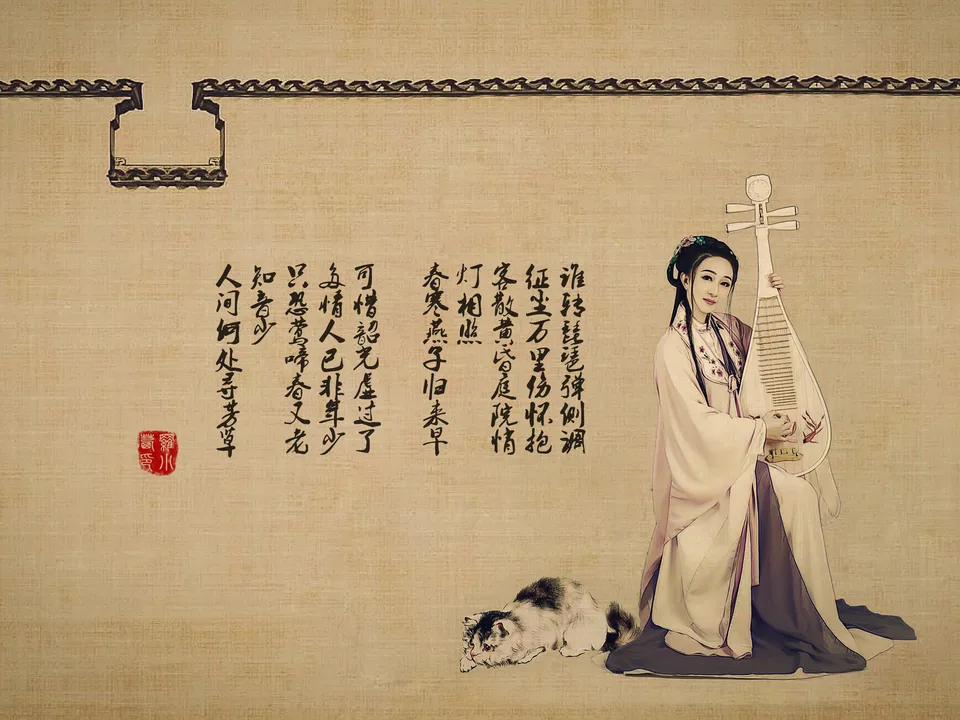 谁转琵琶弹侧调
征尘万里伤怀抱
客散黄昏庭院悄
灯相照
春寒燕子归来早
可惜韶光虚过了
多情人已非年少
只恐莺啼春又老
知音少
人间何处寻芳草
羅小
印